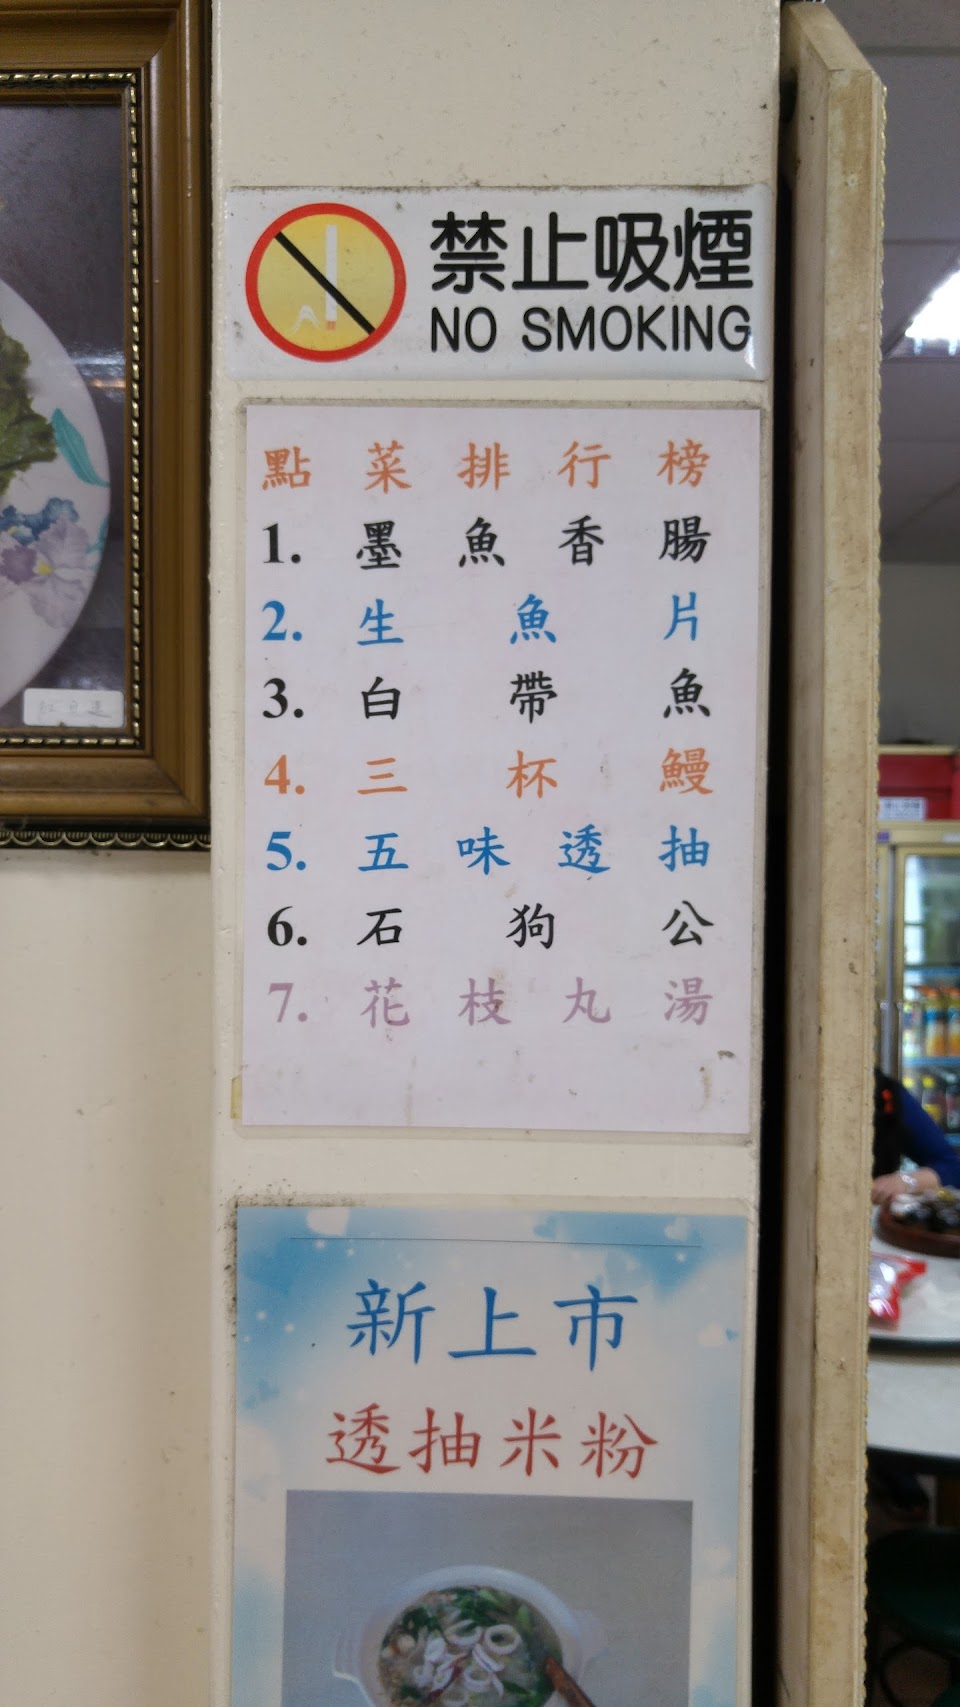 禁止吸煙
NO SMOKING
點菜排行榜
1. 墨魚香腸
2. 生魚片
3. 白帶魚
4. 三杯鰻
5. 五味透抽
6. 石狗公
7. 花枝丸湯
新上市
透抽米粉